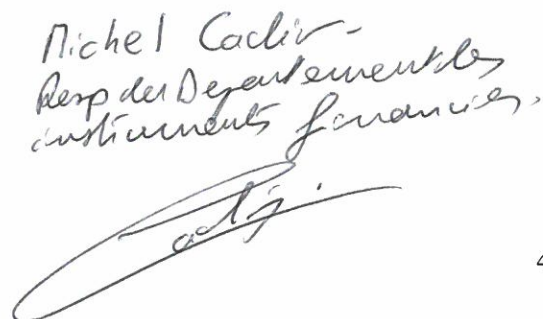 Michel Cadio-
Resp du Departement des
instruments financiers.
4